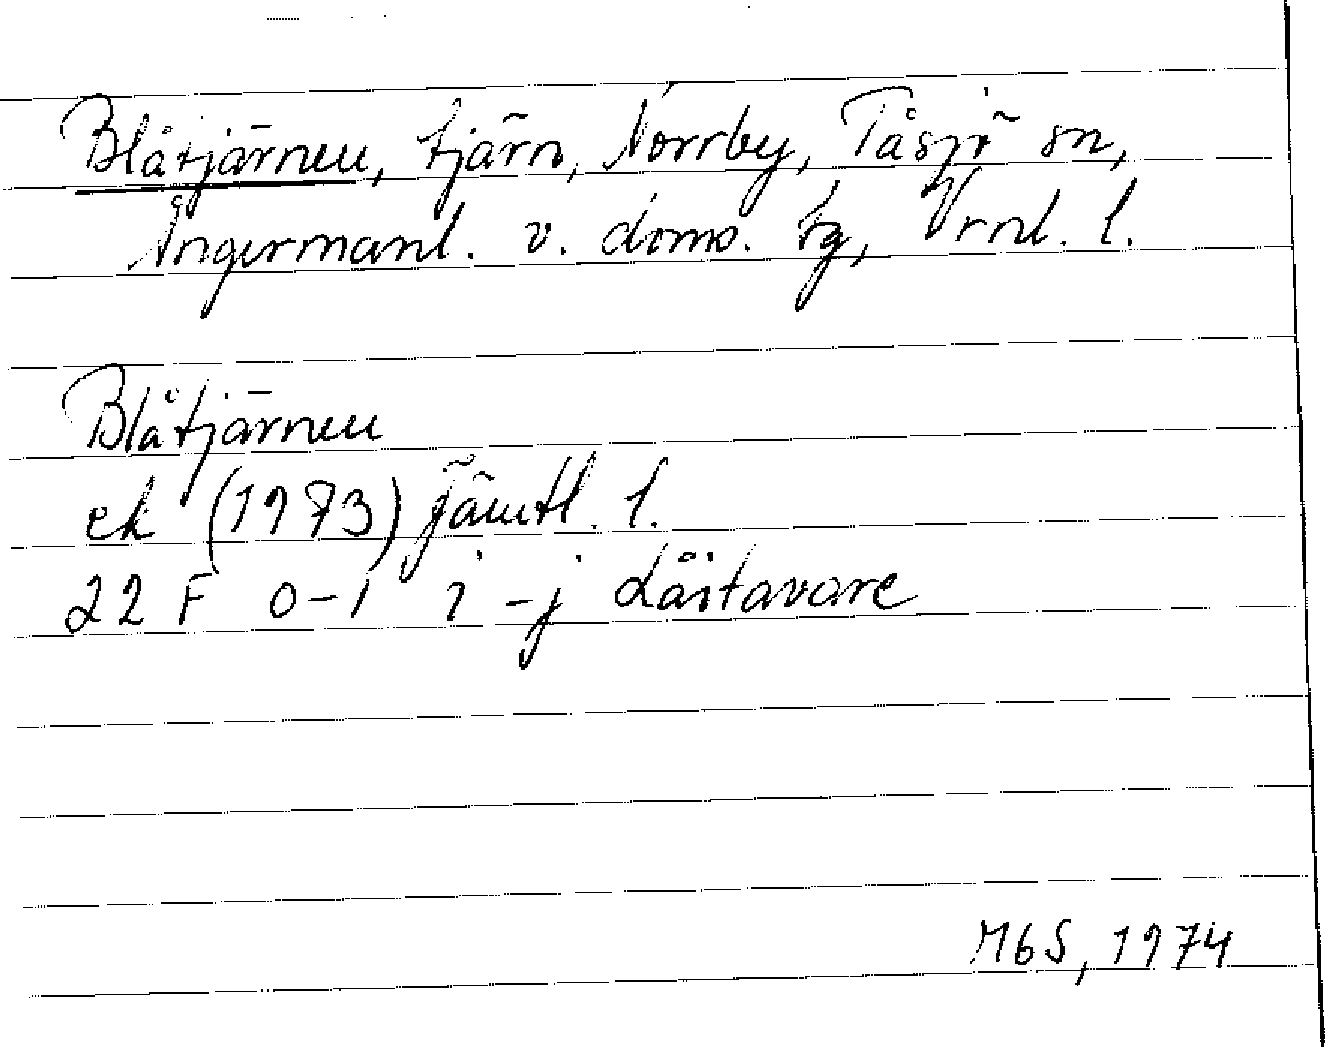 Blåtjärnen, tjärn, Norrby, Tåsjö sn,
Ångermanl. v. doms. tg, Vrnl. l.
Blåtjärnen
ek (1973) Jämtl. l.
22 F 0-1 i-j Lästavare
MGS, 1974